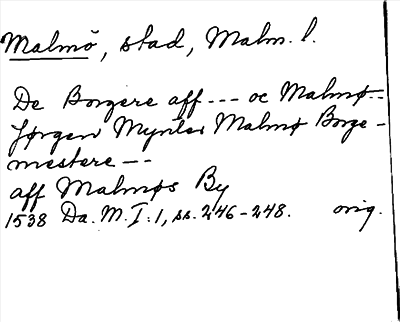 Malmö, stad, Malm. l.
De Borgere aff --- oc Malmø --
Jørgen Myntes Malmø Borge-
mestere ---
aff Malmøs By
1538 Da. M. I:1, ss. 246-248. orig.